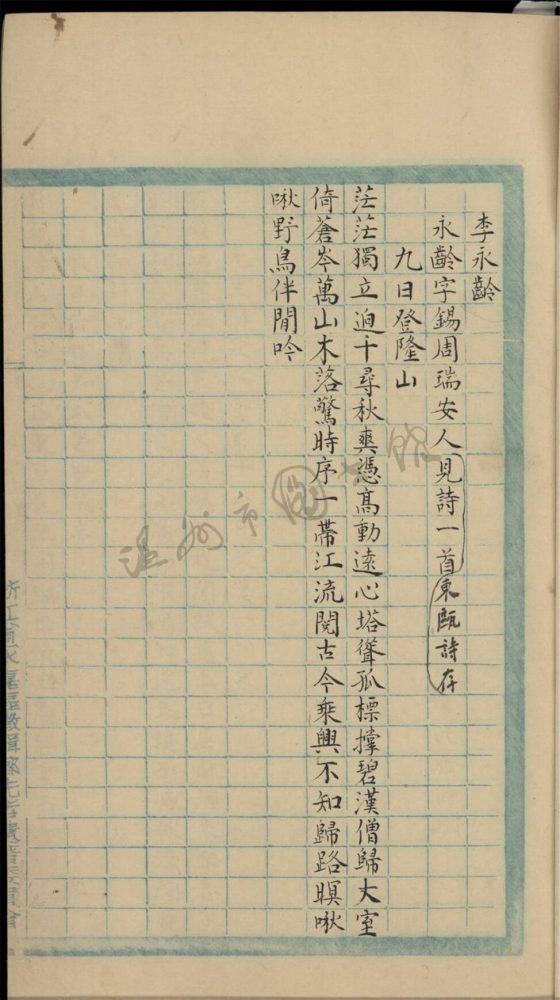 李永齡
永齡字錫周瑞安人見詩一首東甌詩存
九日登隆山
茫茫獨立迥千尋秋爽憑高動遠心塔聳孤標撑碧漢僧歸大室
倚蒼岑萬山木落驚時序一帶江流閱古今乘興不知歸路暝啾
啾野鳥伴閒吟
溫州市圖書館